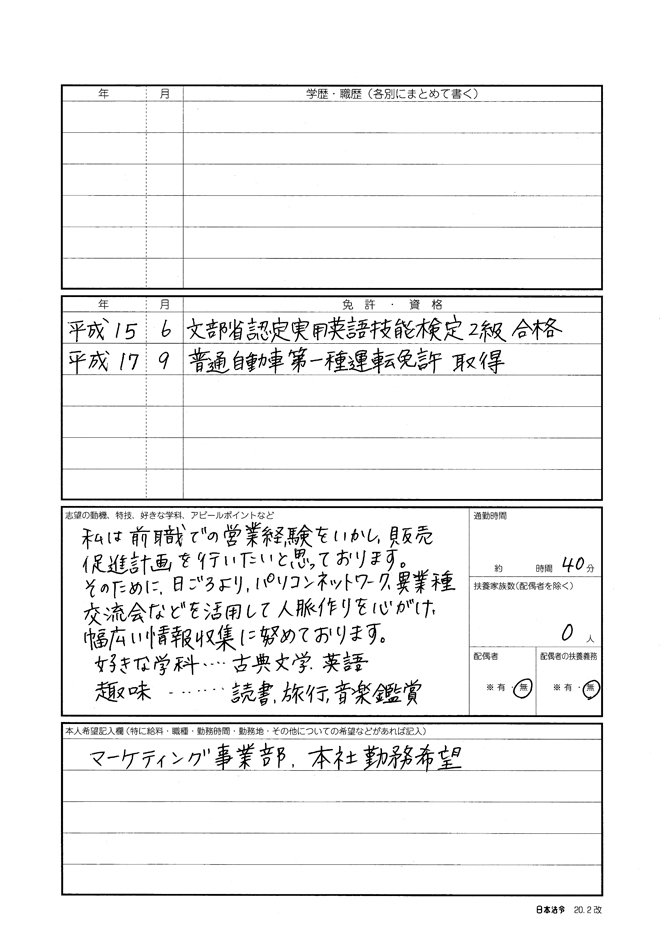 年 月 学歴・職歴（各別にまとめて書く）
年 月 免許・資格
平成15 6 文部省認定実用英語技能検定2級 合格
平成17 9 普通自動車第一種運転免許 取得
志望の動機、特技、好きな学科、アピールポイントなど
私は前職での営業経験をいかし、販売
促進計画を行いたいと思っております。
そのために、日ごろより、パソコンネットワーク、異業種
交流会などを活用して人脈作りを心がけ、
幅広い情報収集に努めております。
好きな学科‥‥古典文学、英語
趣味 ‥‥‥‥読書、旅行、音楽鑑賞
通勤時間
約 時間 40分
扶養家族数(配偶者を除く)
0 人
配偶者
※有・無
配偶者の扶養義務
※有・無
本人希望記入欄（特に給料・職種・勤務時間・勤務地・その他についての希望などがあれば記入）
マーケティング事業部、本社勤務希望
日本法令 20.2改